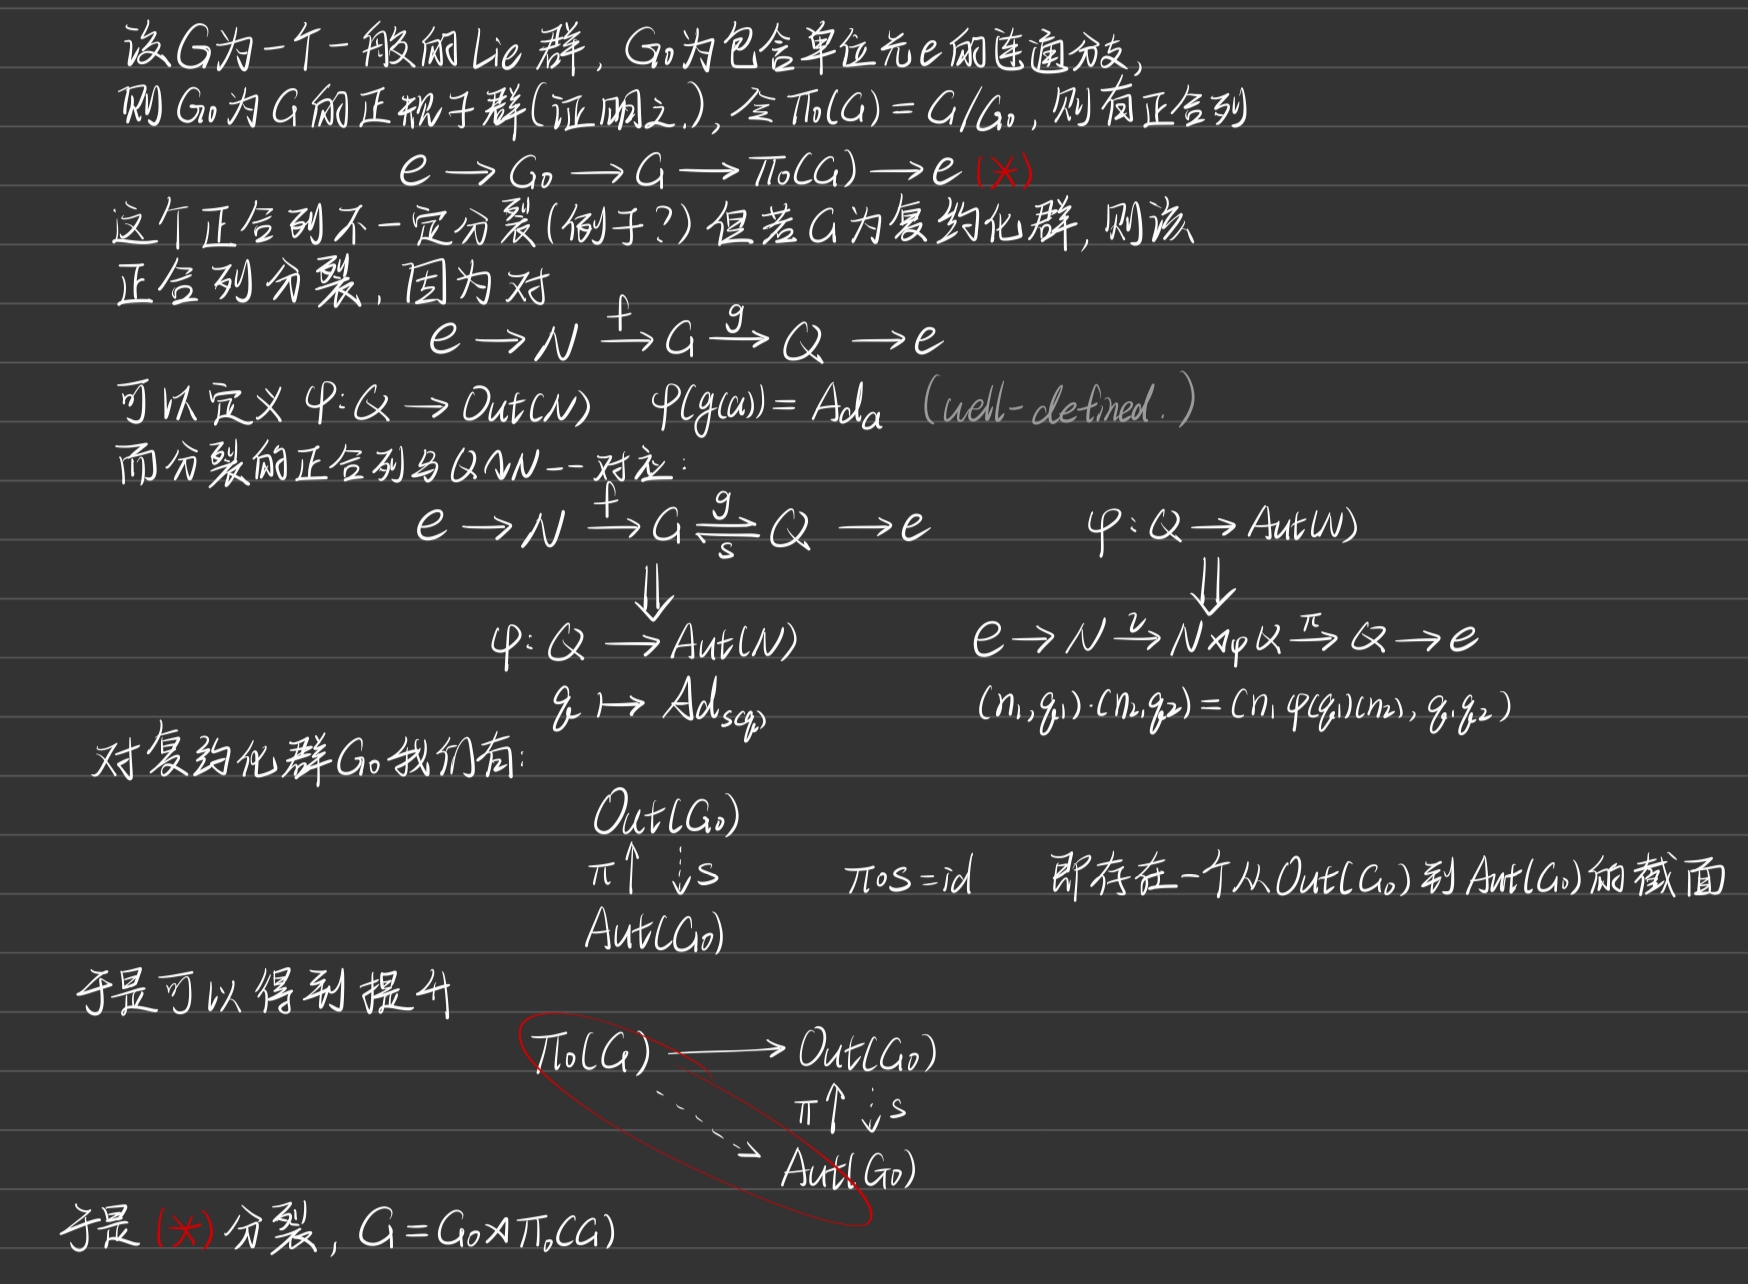 设G为一个一般的Lie群, G₀为包含单位元e的连通分支,
则G₀为G的正规子群(证明之.), 令π₀(G) = G/G₀, 则有正合列
e → G₀ → G → π₀(G) → e (*)
这个正合列不一定分裂(例子?) 但若G为复约化群, 则该
正合列分裂, 因为对
e → N →f G →g Q → e
可以定义 φ: Q → Out(N) φ(g(a)) = Ad_a (well-defined.)
而分裂的正合列与Q↷N一一对应:
e → N →f G ⇄ g s Q → e φ: Q → Aut(N)
⇓ ⇓
φ: Q → Aut(N) e → N →ι N⋊_φ Q →π Q → e
q ↦ Ad_{s(q)} (n₁,q₁)·(n₂,q₂) = (n₁ φ(q₁)(n₂), q₁q₂)
对复约化群G₀我们有:
Out(G₀)
π↑ ⇣s π∘s = id 即存在一个从Out(G₀)到Aut(G₀)的截面
Aut(G₀)
于是可以得到提升
π₀(G) → Out(G₀)
π⇑ ⇣s
Aut(G₀)
于是(*)分裂, G = G₀⋊π₀(G)